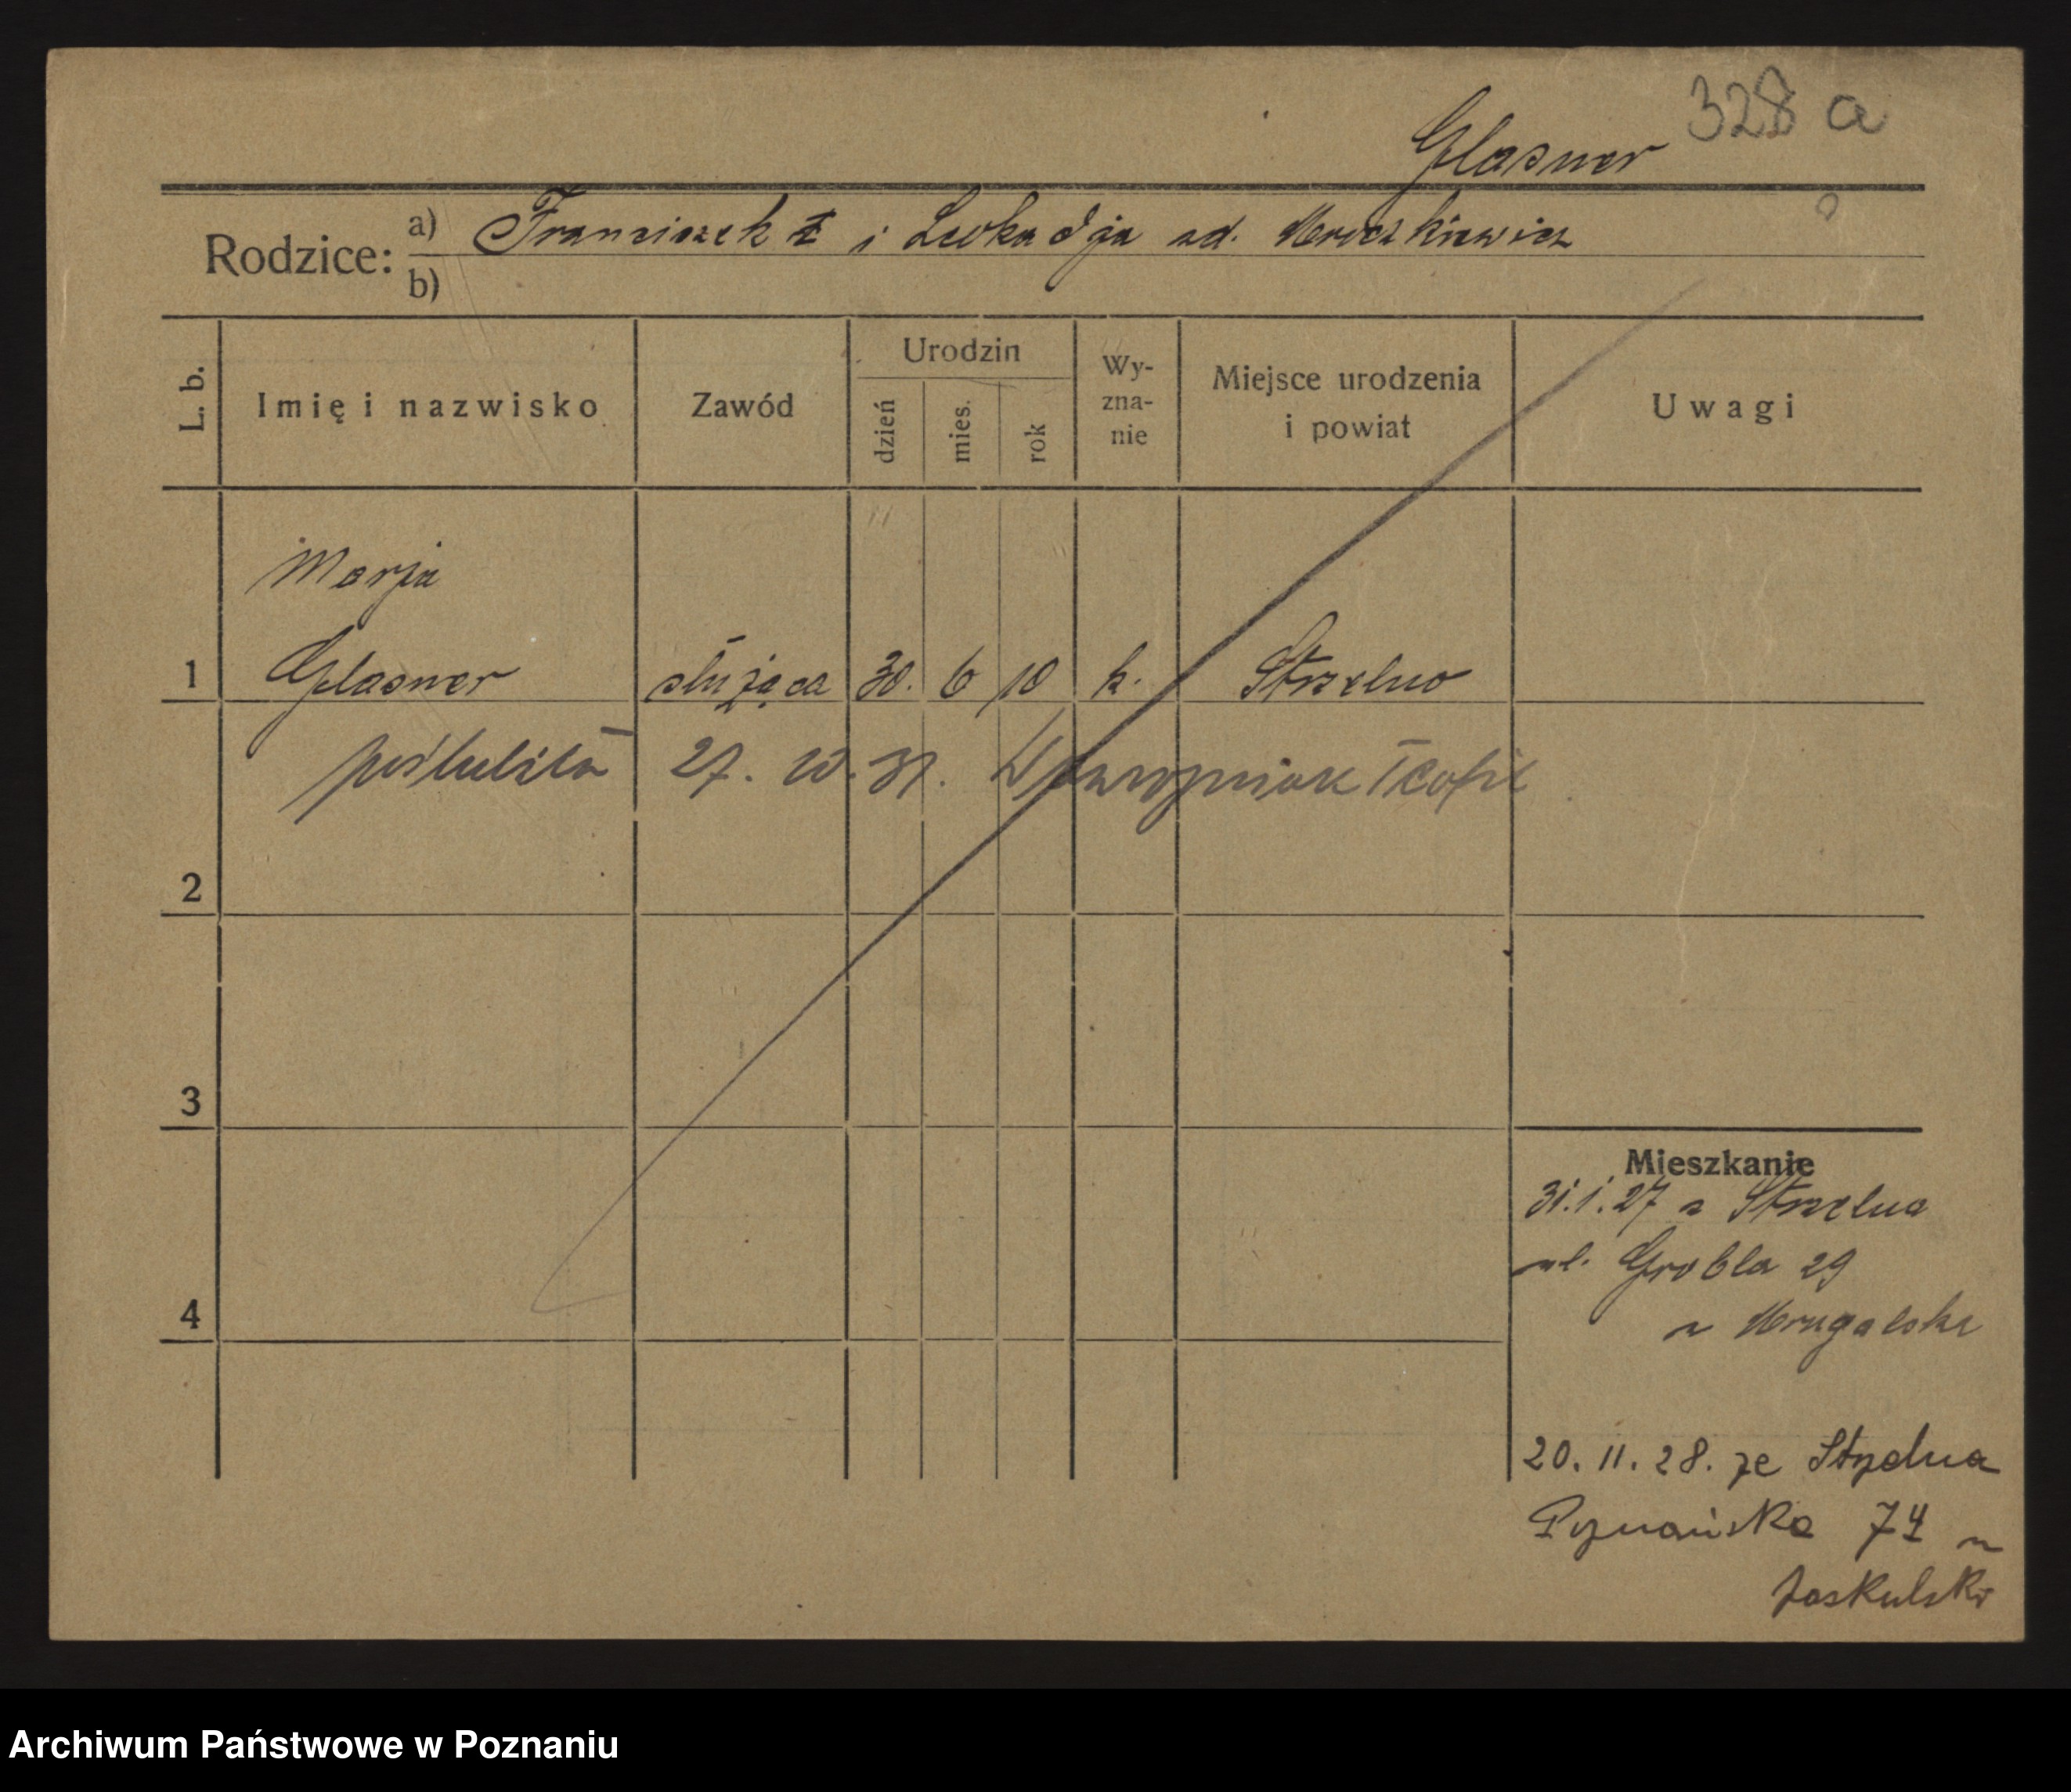 328 a
Glasner
Rodzice: a) Franciszek ‡ i Leokadja zd. Mroczkiewicz
b)
L. b. Imię i nazwisko Zawód Urodzin dzień mies. rok Wy-zna-nie Miejsce urodzenia i powiat Uwagi
Marja
1 Glasner służąca 30. 6 10 k. Strzelno
poślubiła 27. 10. 31. Teofil
2
3
4
Mieszkanie
31.1.27 z Strzelna
ul. Grobla 29
u Mrugalski
20. 11. 28. ze Strzelna
Poznańska 74 u
Jaskulski
Archiwum Państwowe w Poznaniu